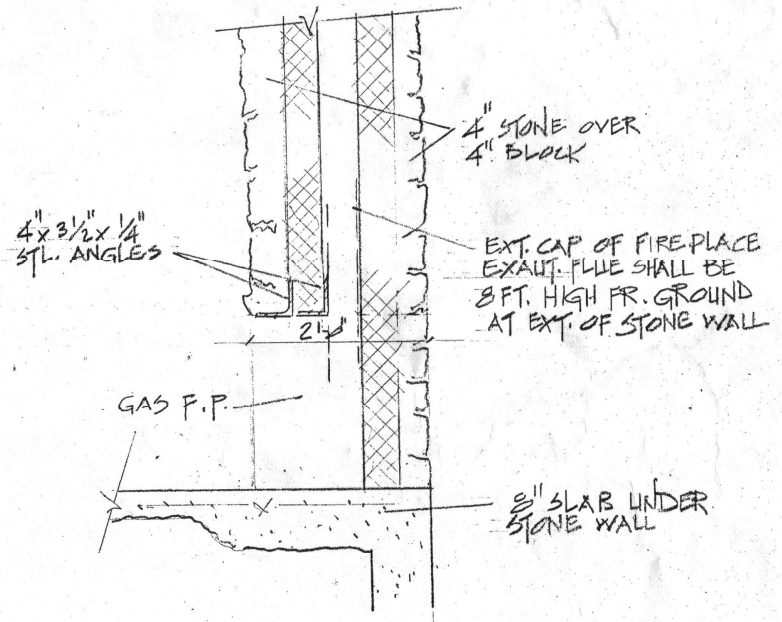 4" STONE OVER
4" BLOCK
4" x 3 1/2" x 1/4"
STL. ANGLES
EXT. CAP OF FIREPLACE
EXAUT. FLUE SHALL BE
8 FT. HIGH FR. GROUND
AT EXT. OF STONE WALL
2'-6"
GAS F.P.
8" SLAB UNDER
STONE WALL